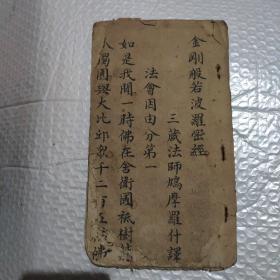 金剛般若波羅蜜經
三藏法師鳩摩羅什譯
法會因由分第一
如是我聞一時佛在舍衛國祇樹給
孤獨園與大比邱衆千二百五